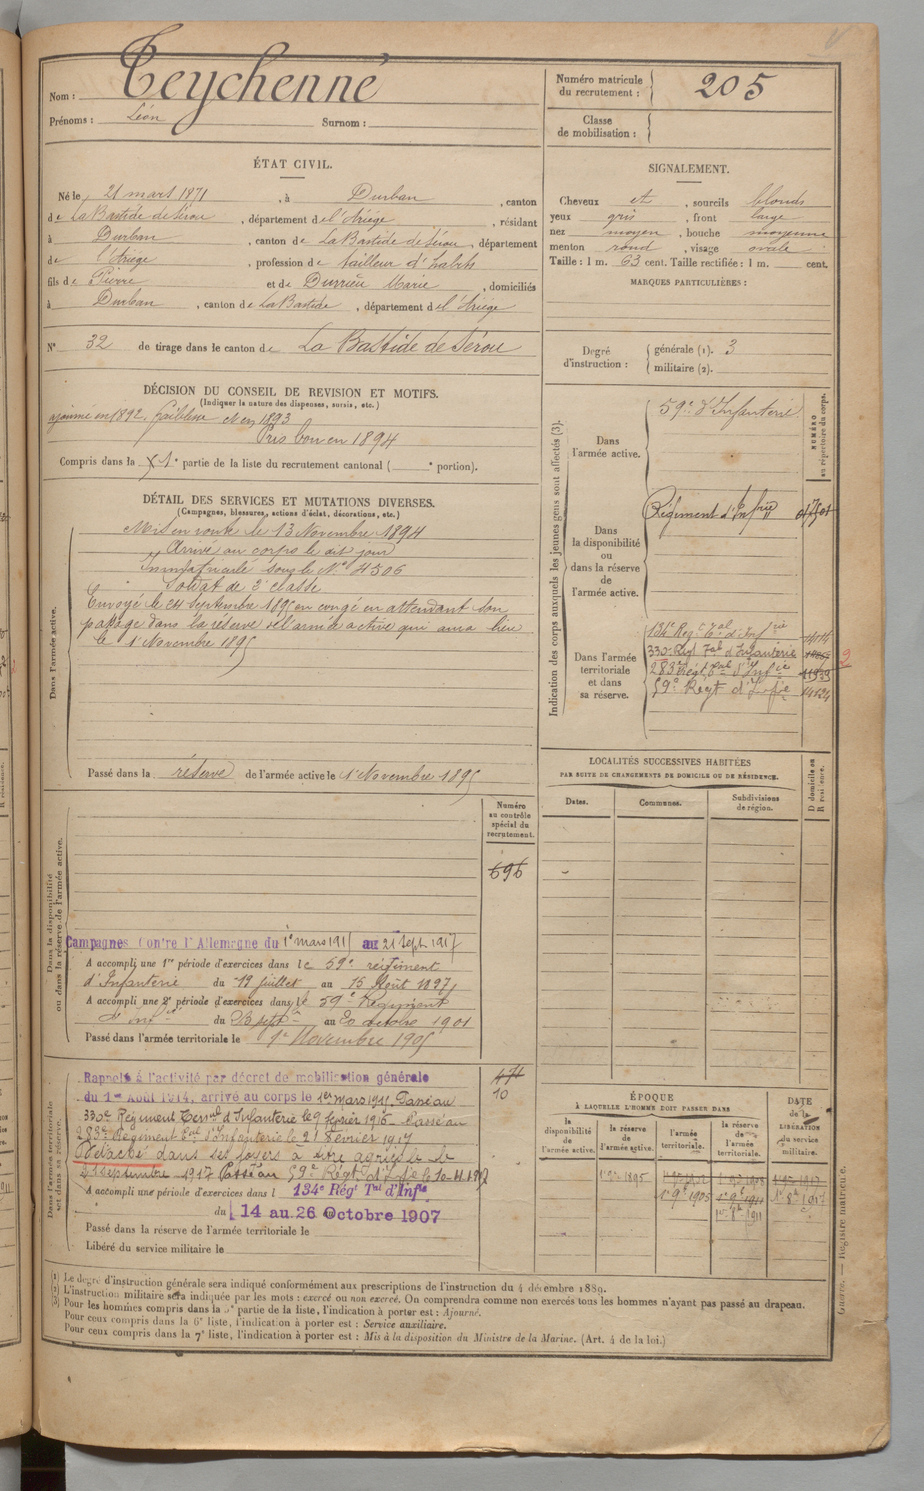 Nom : Teychenné
Prénoms : Léon Surnom :
Numéro matricule
du recrutement : 205
Classe
de mobilisation :
ÉTAT CIVIL.
Né le 21 mars 1871, à Durban, canton
de La Bastide de Sérou, département de l'Ariège, résidant
à Durban, canton de La Bastide de Sérou, département
de l'Ariège, profession de tailleur d'habits
fils de Pierre et de Durrieu Marie, domiciliés
à Durban, canton de La Bastide, département de l'Ariège
N° 32 de tirage dans le canton de La Bastide de Sérou
SIGNALEMENT.
Cheveux et, sourcils blonds
yeux gris, front large
nez moyen, bouche moyenne
menton rond, visage ovale
Taille : 1 m. 63 cent. Taille rectifiée : 1 m. cent.
MARQUES PARTICULIÈRES :
Degré
d'instruction :
générale (1). 3
militaire (2).
DÉCISION DU CONSEIL DE REVISION ET MOTIFS.
(Indiquer la nature des dispenses, sursis, etc.)
ajourné en 1892. faiblesse et en 1893
Pris bon en 1894
Compris dans la 1e partie de la liste du recrutement cantonal ( e portion).
DÉTAIL DES SERVICES ET MUTATIONS DIVERSES.
(Campagnes, blessures, actions d'éclat, décorations, etc.)
Dans l'armée active.
Mis en route le 13 Novembre 1894
Arrivé au corps le dit jour
Immatriculé sous le N° 4506
Soldat de 2e classe
Envoyé le 24 Septembre 1895 en congé en attendant son
passage dans la réserve de l'armée active qui aura lieu
le 1 Novembre 1895
Passé dans la réserve de l'armée active le 1 Novembre 1895
Indication des corps auxquels les jeunes gens sont affectés (3).
NUMÉRO
au répertoire du corps.
Dans
l'armée active.
59e d'Infanterie
Dans
la disponibilité
ou
dans la réserve
de
l'armée active.
Régiment d'Infrie
Dans l'armée
territoriale
et dans
sa réserve.
134e Rég t Tal d'Infrie
330e Regt Tal d'Infanterie
283e Régt Tal d'Infie
59e Regt d'Infie
2
LOCALITÉS SUCCESSIVES HABITÉES
PAR SUITE DE CHANGEMENTS DE DOMICILE OU DE RÉSIDENCE.
Dates. Communes. Subdivisions
de région.
D domicile ou
R résidence.
Numéro
au contrôle
spécial du
recrutement.
696
Dans la disponibilité
ou dans la réserve de l'armée active.
Campagnes Contre l'Allemagne du 1e mars 1915 au 21 Sept 1917
A accompli une 1re période d'exercices dans le 59e régiment
d'Infanterie du 19 juillet au 15 Août 1897
A accompli une 2e période d'exercices dans le 59e Régiment
d'Infie du 23 septre au 20 octobre 1901
Passé dans l'armée territoriale le 1er Novembre 1905
Dans l'armée territoriale
et dans sa réserve.
471
10
Rappelé à l'activité par décret de mobilisation générale
du 1er Août 1914, arrivé au corps le 1er mars 1915. Passé au
330e Régiment Terral d'Infanterie le 9 février 1916 Passé au
283e Régiment Tal d'Infanterie le 21 Février 1917
Détaché dans ses foyers à titre agricole le
21 septembre 1917 Passé au 59e Régt d'Infie le 10-11-1917
A accompli une période d'exercices dans l 134e Régt Tal d'Infie
du 14 au 26 Octobre 1907
Passé dans la réserve de l'armée territoriale le
Libéré du service militaire le
ÉPOQUE
À LAQUELLE L'HOMME DOIT PASSER DANS
DATE
de la
LIBÉRATION
du service
militaire.
la
disponibilité
de
l'armée active.
la réserve
de
l'armée active.
l'armée
territoriale.
la réserve
de
l'armée
territoriale.
1er 9bre 1895
1er 9e 1905
Guerre. — Registre matricule.
(1) Le degré d'instruction générale sera indiqué conformément aux prescriptions de l'instruction du 4 décembre 1889.
(2) L'instruction militaire sera indiquée par les mots : exercé ou non exercé. On comprendra comme non exercés tous les hommes n'ayant pas passé au drapeau.
(3) Pour les hommes compris dans la 5e partie de la liste, l'indication à porter est : Ajourné.
Pour ceux compris dans la 6e liste, l'indication à porter est : Service auxiliaire.
Pour ceux compris dans la 7e liste, l'indication à porter est : Mis à la disposition du Ministre de la Marine. (Art. 4 de la loi.)